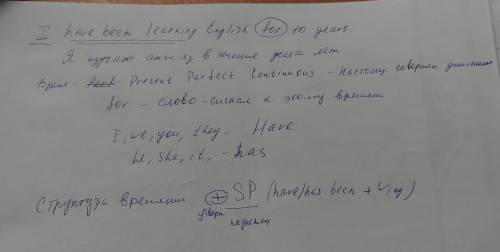 I have been learning English for 10 years.
Я изучаю англ яз в течение десяти лет
Время - Present Perfect Continuous - Настоящ. соверш длительное
for - слово-сигнал к этому времени
I, we, you, they - Have
he, she, it, - has
Структура времени + SP (have/has been + Ving)
утверд подлежащ